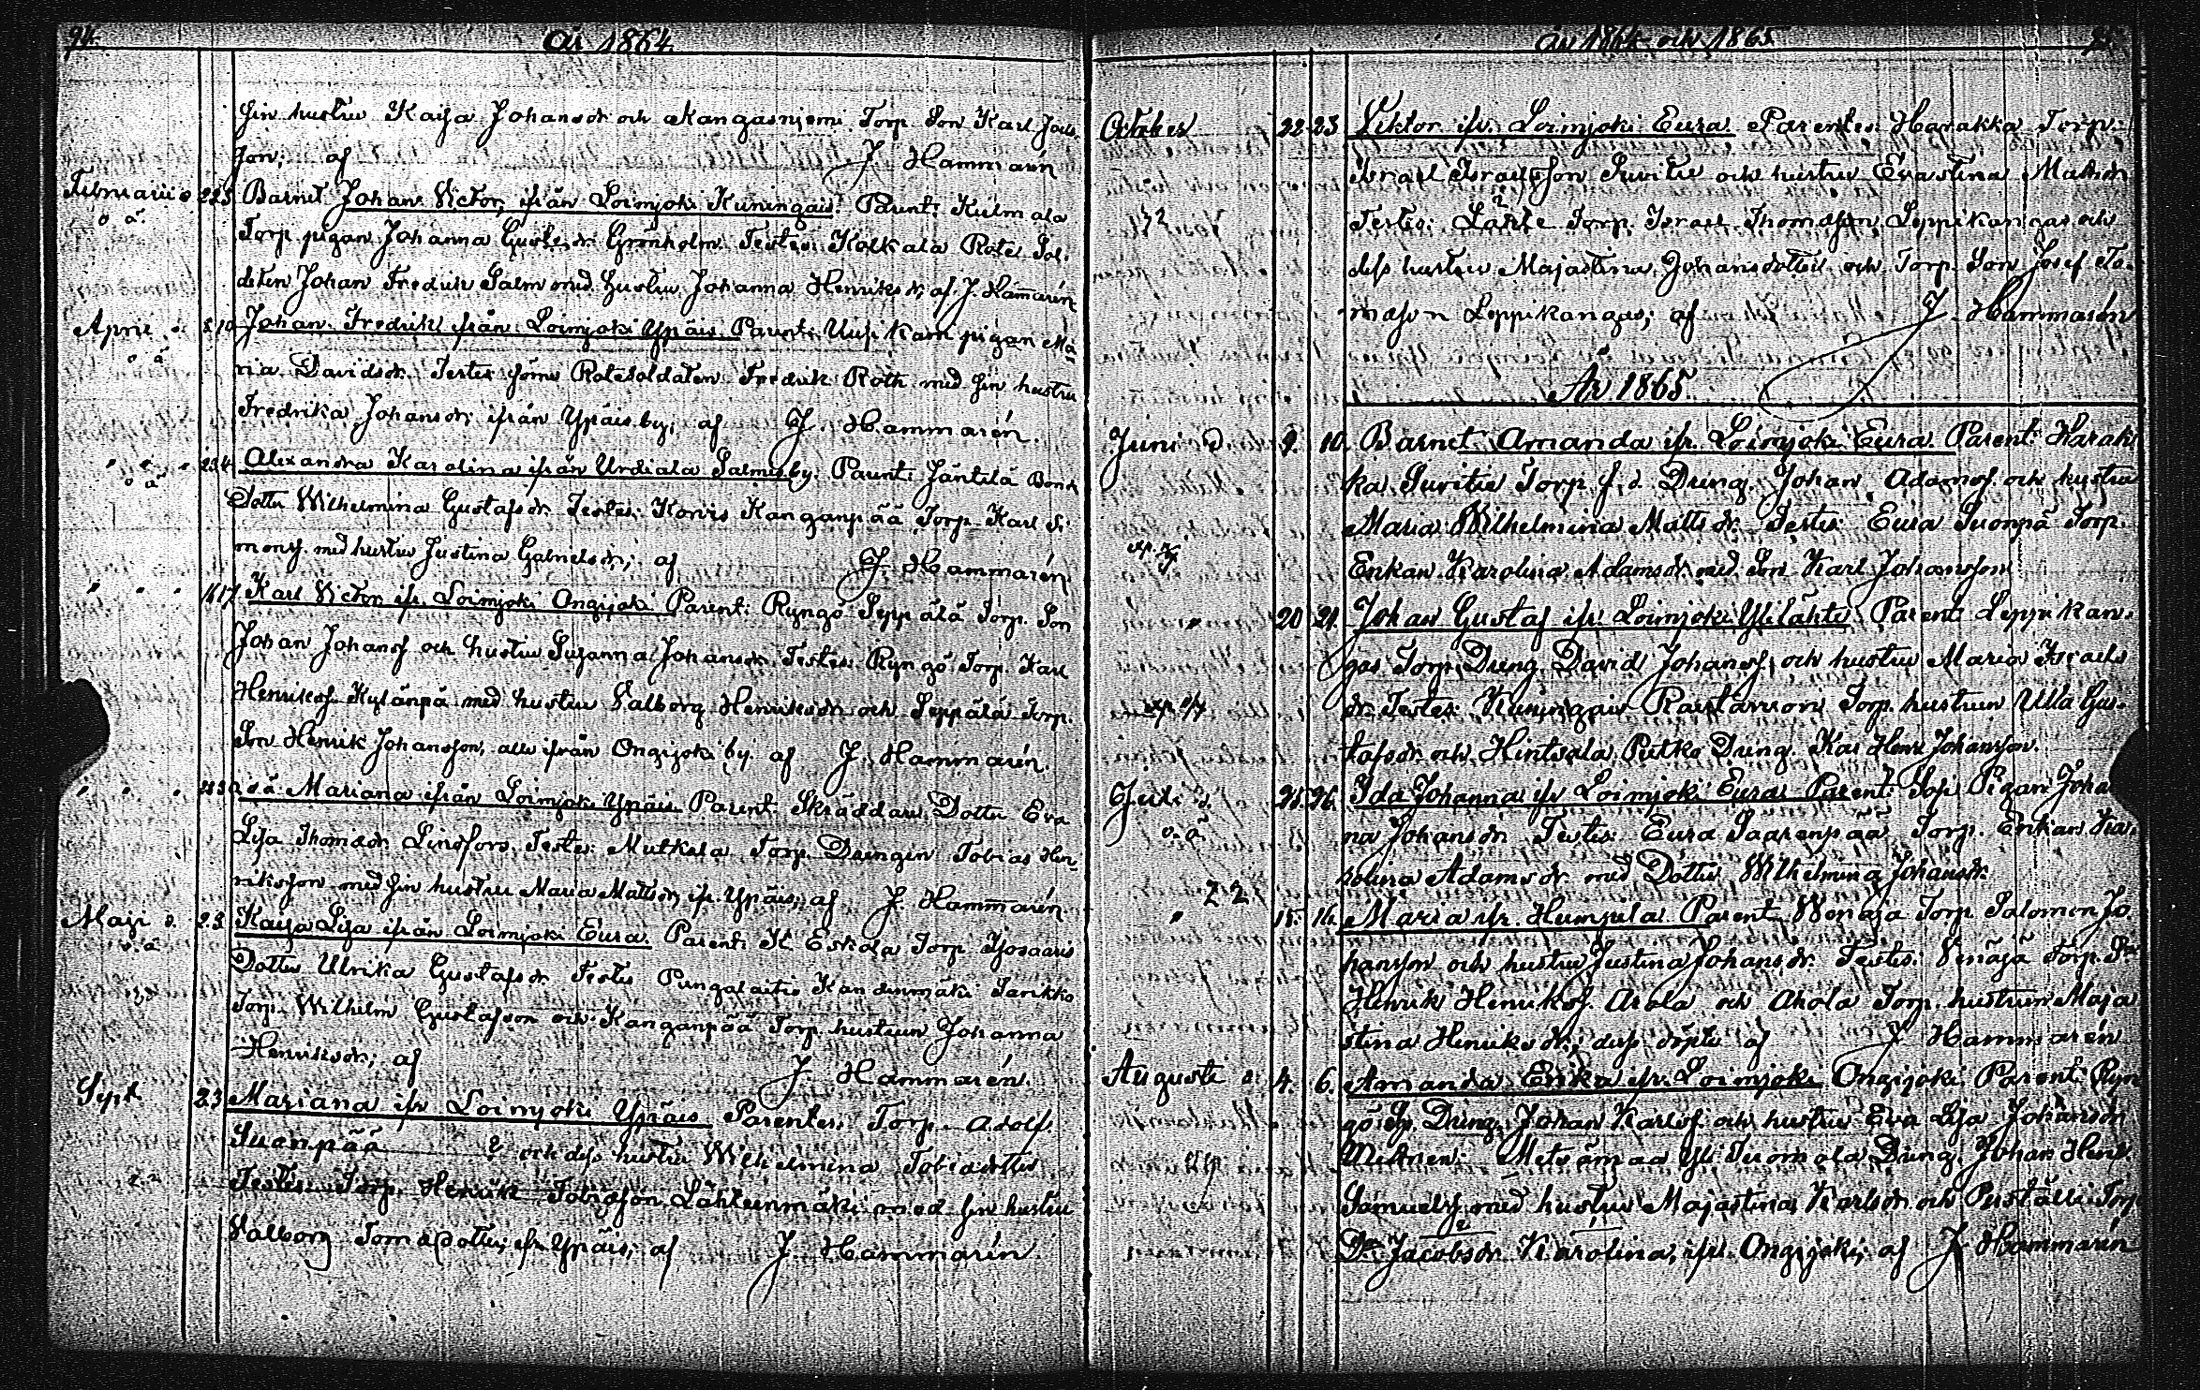 94.
År 1864
sin hustru Kaisa Johansdr. och Kangasniemi Torp. Son Karl Johs
son; af J. Hammarén
Februarii 22 23 Barnet Johan Victor, ifrån Loimjoki Kuningais. Parent: Kulmala
o ä
Torp. pigan Johanna Gustafsdr. Grönholm. Testes: Kolkala Rote Sol-
daten Johan Fredrik Palm med hustru Johanna Henriksdr, af J. Hammarén
April 8 10 Johan Fredrik ifrån Loimjoki Ypäis. Parent: Uusi Kam pigan Ma-
o ä
ria Davidsdr. Testes förre Rotesoldaten Fredrik Roth med sin hustru
Fredrika Johansdr, ifrån Ypäis by, af J. Hammarén.
" " " 23 4 Alexandra Karolina ifrån Urdiala Salmis by. Parent: Jäntelä Bonde
o ä
Dotter Wilhelmina Gustafsdr. Testes: Korvis Kanganpää Torp. Karl Si-
monss. med hustru Justina Gabrielsdr; af J. Hammarén
" " " 16 17 Karl Victor ifr. Loimjoki Ongijoki Parent: Ryngö Seppälä Torp. Son
Johan Johanss. och hustru Susanna Johansdr. Testes: Ryngö Torp. Karl
Henrikss. Kylänpä med hustru Valborg Henriksdr och Seppälä Torp.
Son Henrik Johansson, alla ifrån Ongijoki by. af J. Hammarén.
" " " oä Mariana ifrån Loimjoki Ypäis Parent: Skräddare Dotter Eva
Lisa Thomasdr Lindfors. Testes: Mutkala Torp. Drengen Tobias Hen-
riksson med sin hustru Maria Mattsdr, ifr. Ypäis, af J. Hammarén
Maji d. 2 3 Kaisa Lisa ifrån Loimjoki Eura Parent: Eskola Torp.
o. ä
Dotter Ulrika Gustafsdr. Testes Pungalaitio Kandinmäki Tarikko
Torp. Wilhelm Gustafsson och Kanganpää Torp. hustrun Johanna
Henriksdr; af J. Hammarén.
Sept 2 3 Mariana ifr Loimjoki Ypäis Parentes: Torp. Adolf
Suanpää och dess hustru Wilhelmina Tobiadotter
Testes: Torp. Henrik Tobiasson Lähteenmäki med sin hustru
Valborg Tomasdotter, ifr. Ypäis, af J. Hammarén.
År 1864 och 1865 95.
October 22 23 Viktor ifr. Loimjoki Eura Parentes: Harakka Torp.
Israel Israelsson Suvitie och hustru Evastina Matsdr
Testes: Lahte Torp. Israel Thomasson Leppikangas och
dess hustru Majastina Johansdotter och Torp. Son Josef To-
masson Leppikangas; af J. Hammarén
År 1865.
Juni d. 9. 10. Barnet Amanda ifr. Loimjoki Eura Parent: Harak
ka Suvitie Torp. f. d. Dreng. Johan Adamss. och hustru
Maria Wilhelmina Matts dr. Testes: Eura Suonpä Torp.
Enkan Karolina Adamsdr. med Son Karl Johansson
" 20 21. Johan Gustaf ifr. Loimjoki Ylilähte Parent: Leppikan-
gas Torp. Dreng David Johanss. och hustru Maria Israels
dr. Testes: Kuningais Torp. hustrun Ulla Gus-
tafsdr och Hintsala Dreng. Johansson.
Juli d. 25. 26. Ida Johanna ifr Loimjoki Eura Parent: Pigan Joha
o. ä
na Johansdr. Testes: Eura Saarenpää Torp. Enkan Ka-
rolina Adamsdr. med Dotter Wilhelmina Johansdr.
22
" 15. 16. Maria ifr. Humpila Parent Wenäjä Torp Salomon Jo
hansson och hustru Justina Johansdr. Testes: Venäjä Torp.
Henrik Henrikss. Akola och Akola Torp. hustrun Maja
stina Henriksdr; af J Hammarén
Augusti d. 4. 6. Amanda Erika ifr. Loimjoki Ongijoki Parent: Ryn
gö Dreng Johan Karlss. och hustru Eva Lisa Johansdr
Metsämaa Yli Tuomola Dreng Johan Henr
Samuelss. med hustru Majastina Karlsdr och Torp
Dr. Jacobsdr. Karolina, ifr. Ongijoki; af J Hammarén